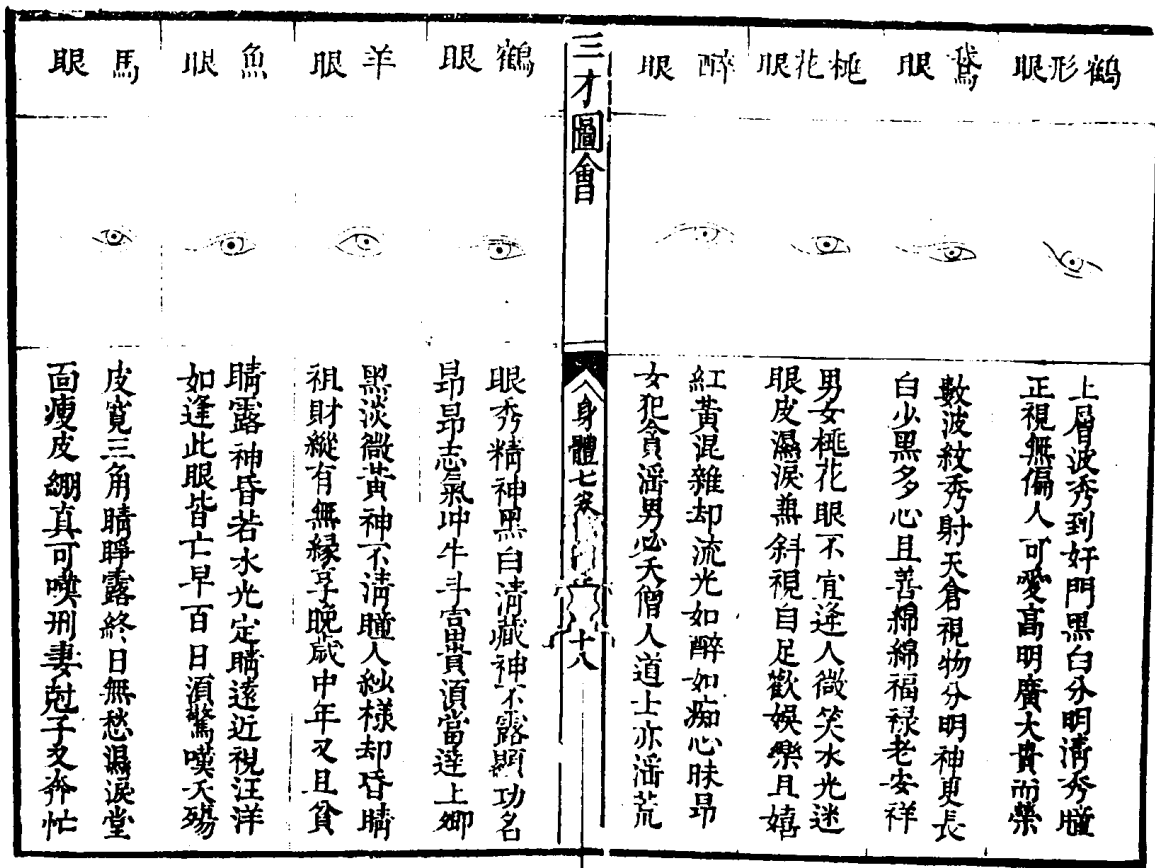 鶴形眼
上層波秀到奸門黑白分明清秀瞳
正視無偏人可愛高明廣大貴而榮
鵞眼
數波紋秀射天倉視物分明神更長
白少黑多心且善綿綿福祿老安祥
桃花眼
男女桃花眼不宜逢人微笑水光迷
眼皮濕淚兼斜視自足歡娛樂且嬉
醉眼
紅黃混雜却流光如醉如痴心昧昂
女犯貪滛男必夭僧人道士亦滛荒
三才圖會
身體七卷
十八
鶴眼
眼秀精神黑白清藏神不露顯功名
昂昂志氣冲牛斗富貴須當達上卿
羊眼
黑淡微黃神不清瞳人紗樣却昏睛
祖財縱有無緣享晚歲中年又且貧
魚眼
睛露神昏若水光定睛遠近視汪洋
如逢此眼皆亡早百日須驚嘆夭殤
馬眼
皮寬三角睛睜露終日無愁濕淚堂
面瘦皮繃真可嘆刑妻尅子又奔忙